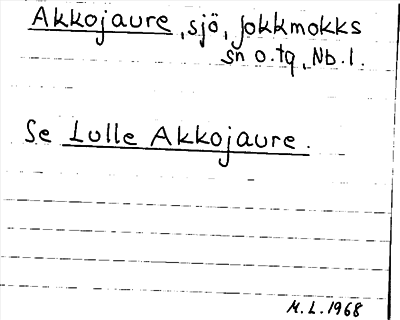 Akkojaure, sjö, Jokkmokks
sn o. tg, Nb. l.
Se Lulle Akkojaure.
M. L. 1968